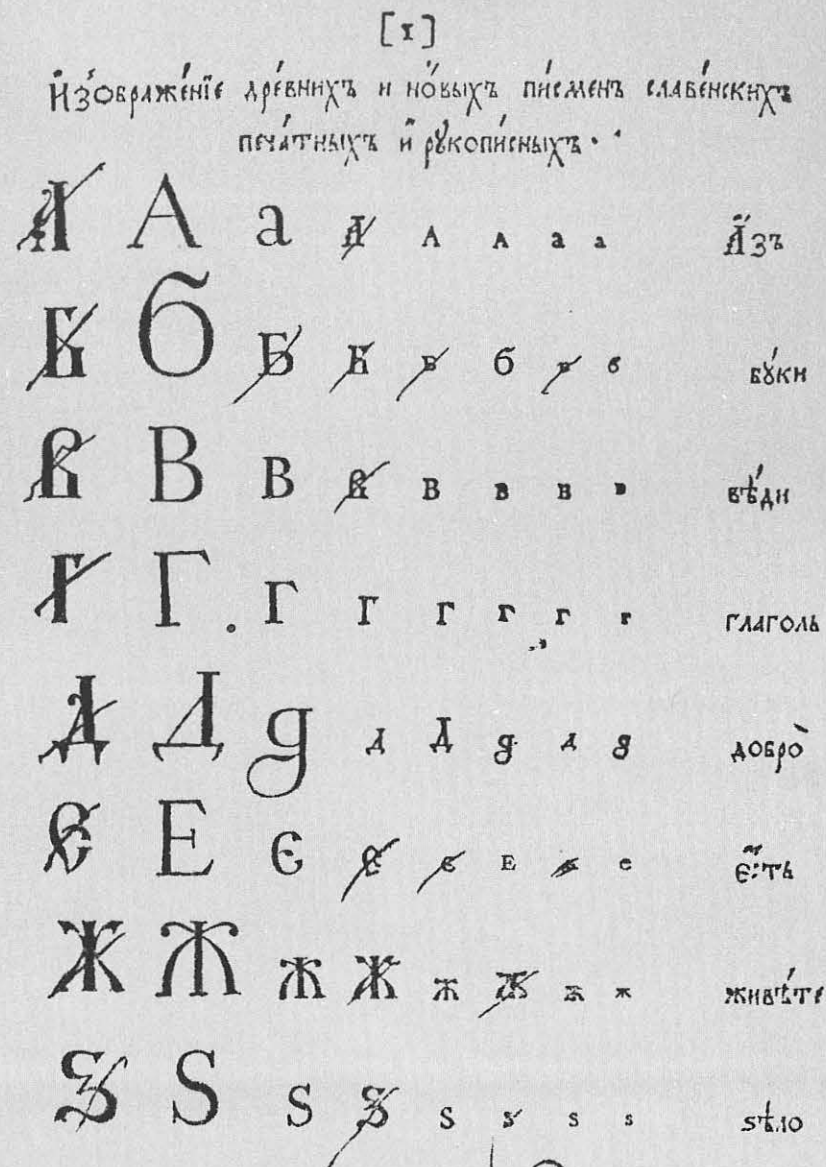 [1]
И҆зѡбраже́нїе дре́внихъ и но́выхъ пи́сменъ славе́нскихъ
печа́тныхъ и҆ рꙋкопи́сныхъ.
А А а А А А а а А҆́зъ
Б б Б Б Б б Б б бꙋ́ки
В В В В В В В В вѣ́ди
Г Г Г Г Г Г Г Г глаголь
Д Д д Д Д д Д д добро̀
Є Е Є Є Є Е Є е є҆́сть
Ж Ж Ж Ж Ж Ж Ж Ж живѣ́те
Ѕ Ѕ Ѕ Ѕ Ѕ Ѕ Ѕ Ѕ ѕѣло